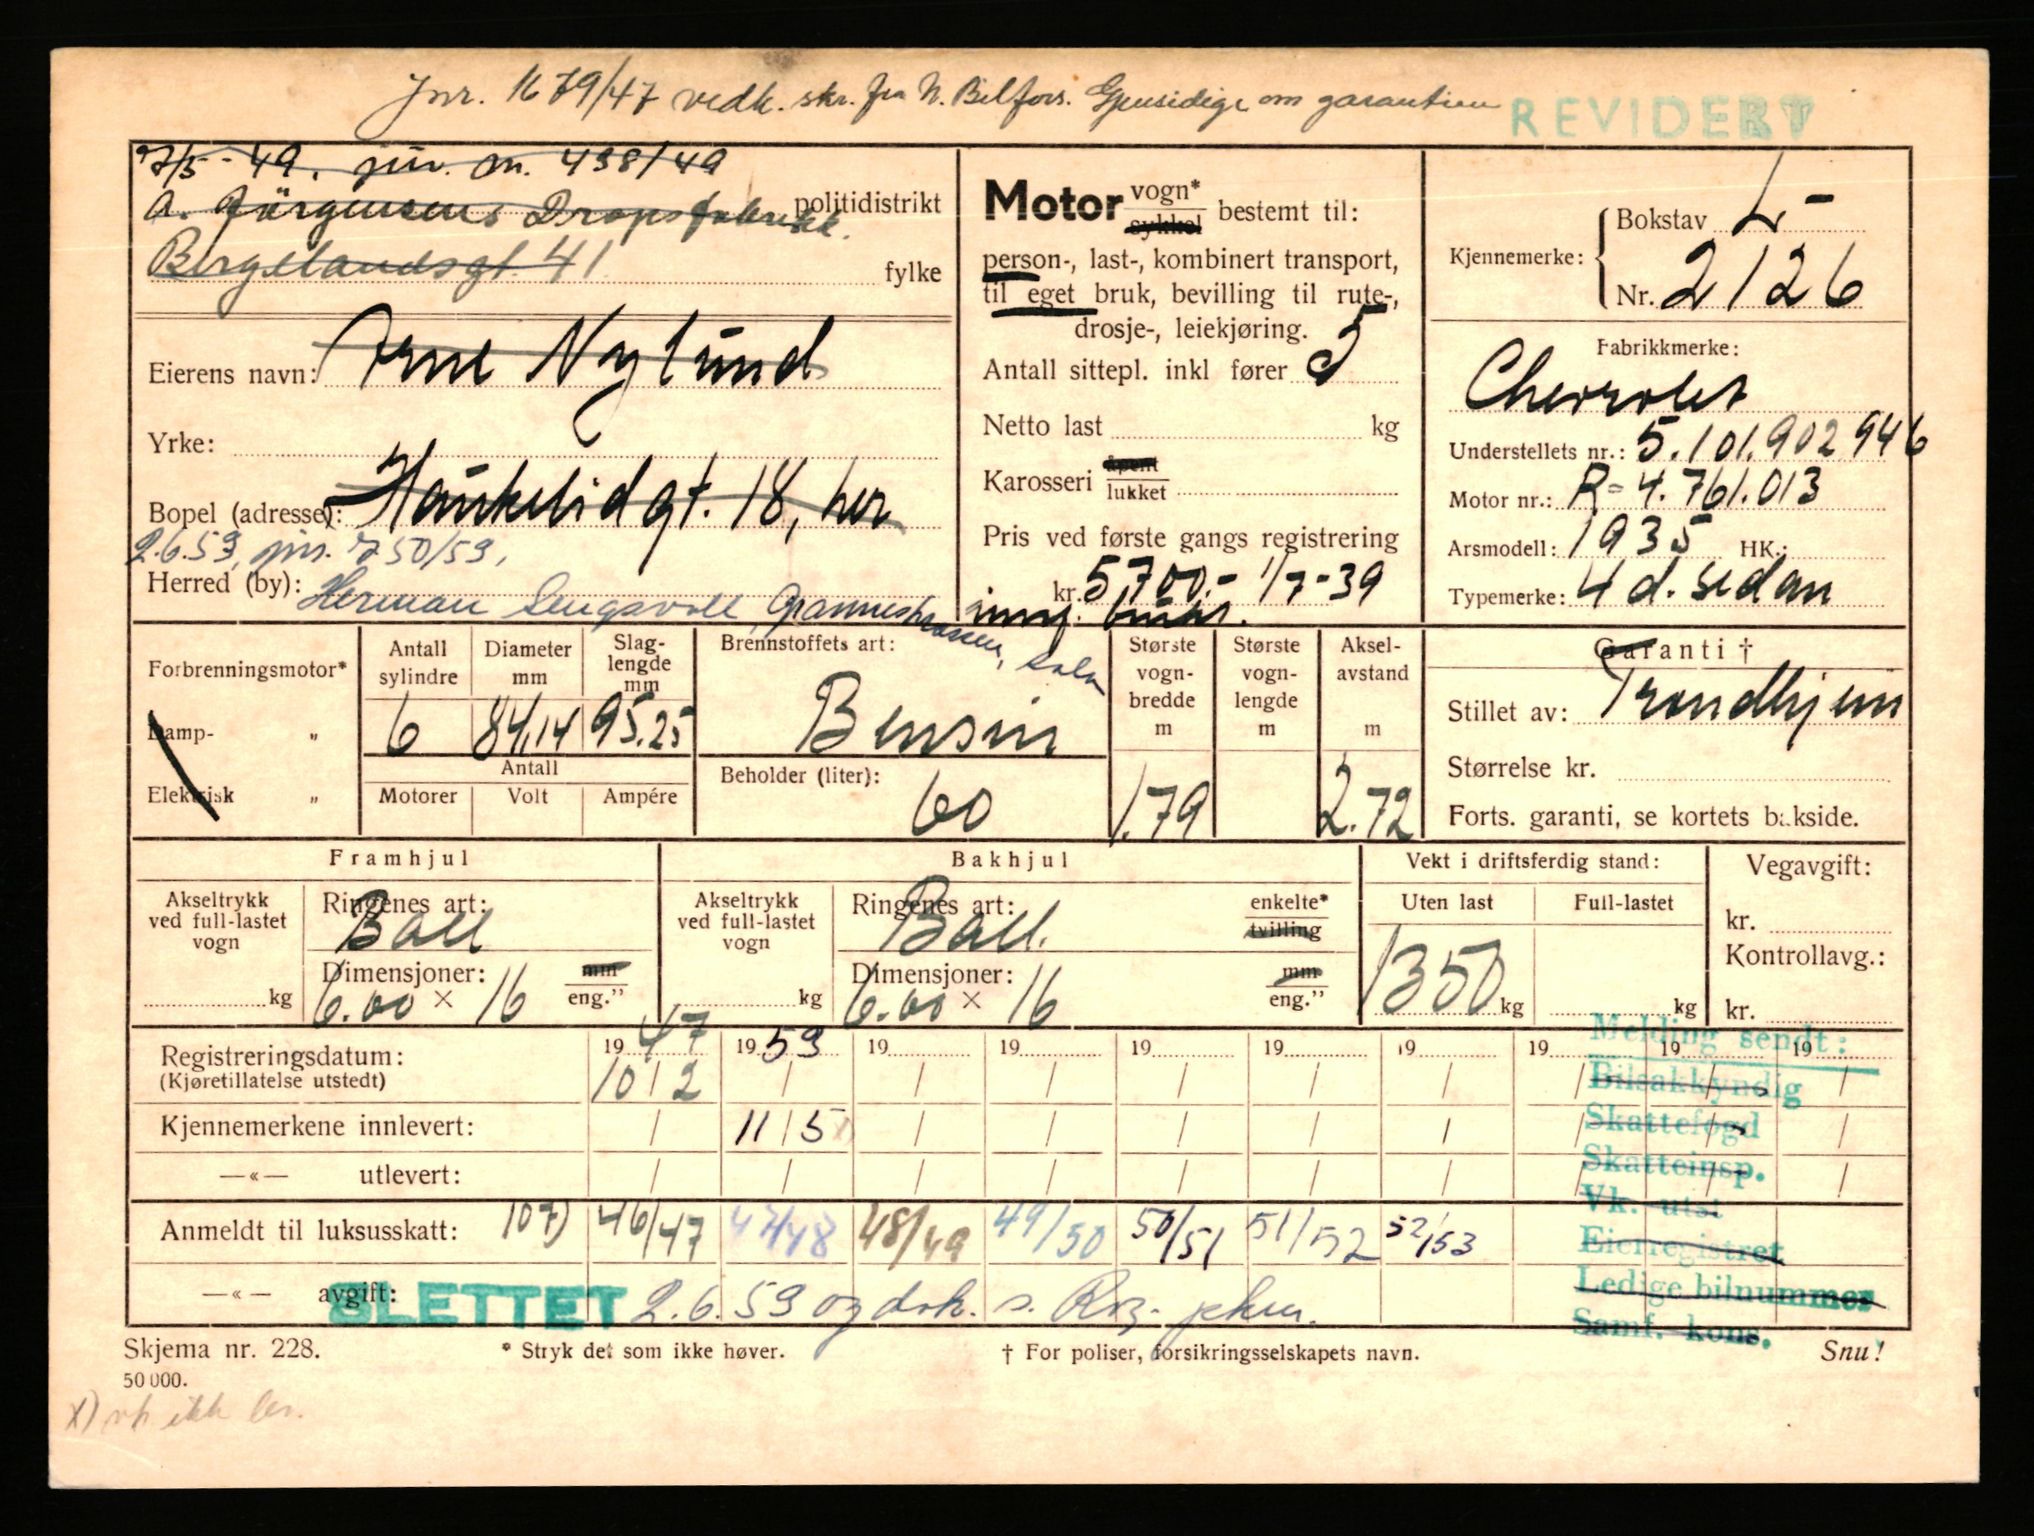 Jnr. 1679/47 vedk. skr. fra N. Bilfors. Gjensidige om garantien
REVIDERT
7/5-49. jnr. m. 498/49
A. Jörgensens Dropsfabrikk.
politidistrikt
Bergelandsgt 41
fylke
Eierens navn: Arne Nylund
Yrke:
Bopel (adresse): Haukelidgt. 18, her
2.6.53, jnr. 750/53,
Herred (by): Herman Lengsvoll, Grannesbrassen, Sola
Motor vogn* sykkel bestemt til:
person-, last-, kombinert transport,
til eget bruk, bevilling til rute-,
drosje-, leiekjøring.
Antall sittepl. inkl fører 5
Netto last kg
Karosseri åpent lukket
Pris ved første gangs registrering
kr. 5.700.- 1/7-39
Kjennemerke: Bokstav L-
Nr. 2126
Fabrikkmerke:
Chevrolet
Understellets nr.: 5.101.902 946
Motor nr.: R-4.761.013
Arsmodell: 1935 HK.:
Typemerke: 4 d. sedan
Forbrenningsmotor*
Damp- "
Elektrisk "
Antall sylindre
Diameter mm
Slag-lengde mm
6 84,14 95.25
Antall
Motorer Volt Ampére
Brennstoffets art:
Bensin
Beholder (liter):
60
Største vogn-bredde m
1.79
Største vogn-lengde m
Aksel-avstand m
2.72
Garanti †
Stillet av: Trondhjem
Størrelse kr.
Forts. garanti, se kortets bakside.
Framhjul
Akseltrykk ved full-lastet vogn
kg
Ringenes art:
Ball
Dimensjoner: mm
6.00 × 16 eng."
Bakhjul
Akseltrykk ved full-lastet vogn
kg
Ringenes art: enkelte*
Ball. tvilling
Dimensjoner: mm
6.00 × 16 eng."
Vekt i driftsferdig stand:
Uten last Full-lastet
1350 kg kg
Vegavgift:
kr.
Kontrollavg.:
kr.
Registreringsdatum: 19 47 19 53 19 19 19 19 19 19 19 19
(Kjøretillatelse utstedt) 10/2 / / / / / / / / /
Kjennemerkene innlevert: / 11/5 x) / / / / / / / /
—«— utlevert: / / / / / / / / / /
Anmeldt til luksusskatt: 107) 46/47 47/48 48/49 49/50 50/51 51/52 52/53
—«— avgift:
SLETTET 2.6.53
Melding sendt:
Bilsakkyndig
Skattefogd
Skatteinsp.
Vk. utst
Eierregistret
Ledige bilnummer
Samf. kons.
Skjema nr. 228.
* Stryk det som ikke høver.
† For poliser, forsikringsselskapets navn.
Snu!
50 000.
x) vk ikke lev.